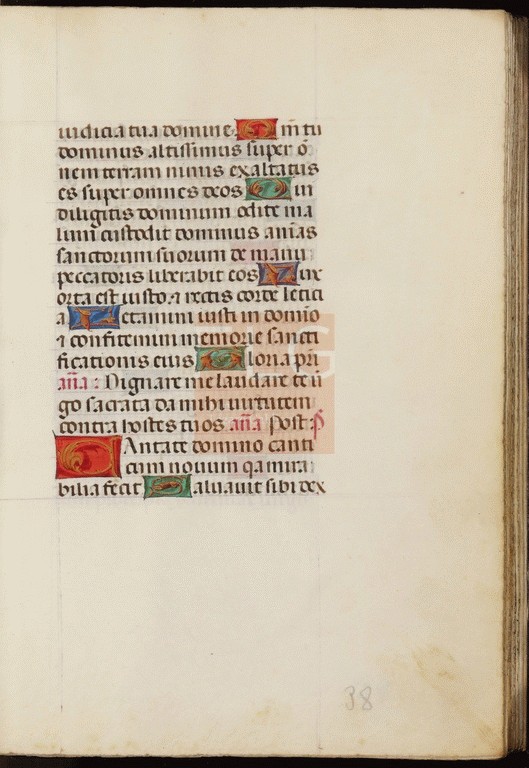 iudicia tua domine. Qm tu
dominus altissimus super o
nem terram nimis exaltatus
es super omnes deos Qui
diligitis dominum odite ma
lum custodit dominus animas
sanctorum suorum de manu
peccatoris liberabit eos Lux
orta est iusto ⁊ rectis corde letici
a Letamini iusti in domino
⁊ confitemini memorie sancti
ficationis eius Gloria pri
aña : Dignare me laudare te ui
go sacrata da mihi uirtutem
contra hostes tuos aña Post p
Cantate domino canti
cum nouum qa mira
bilia fecit Saluauit sibi dex
38